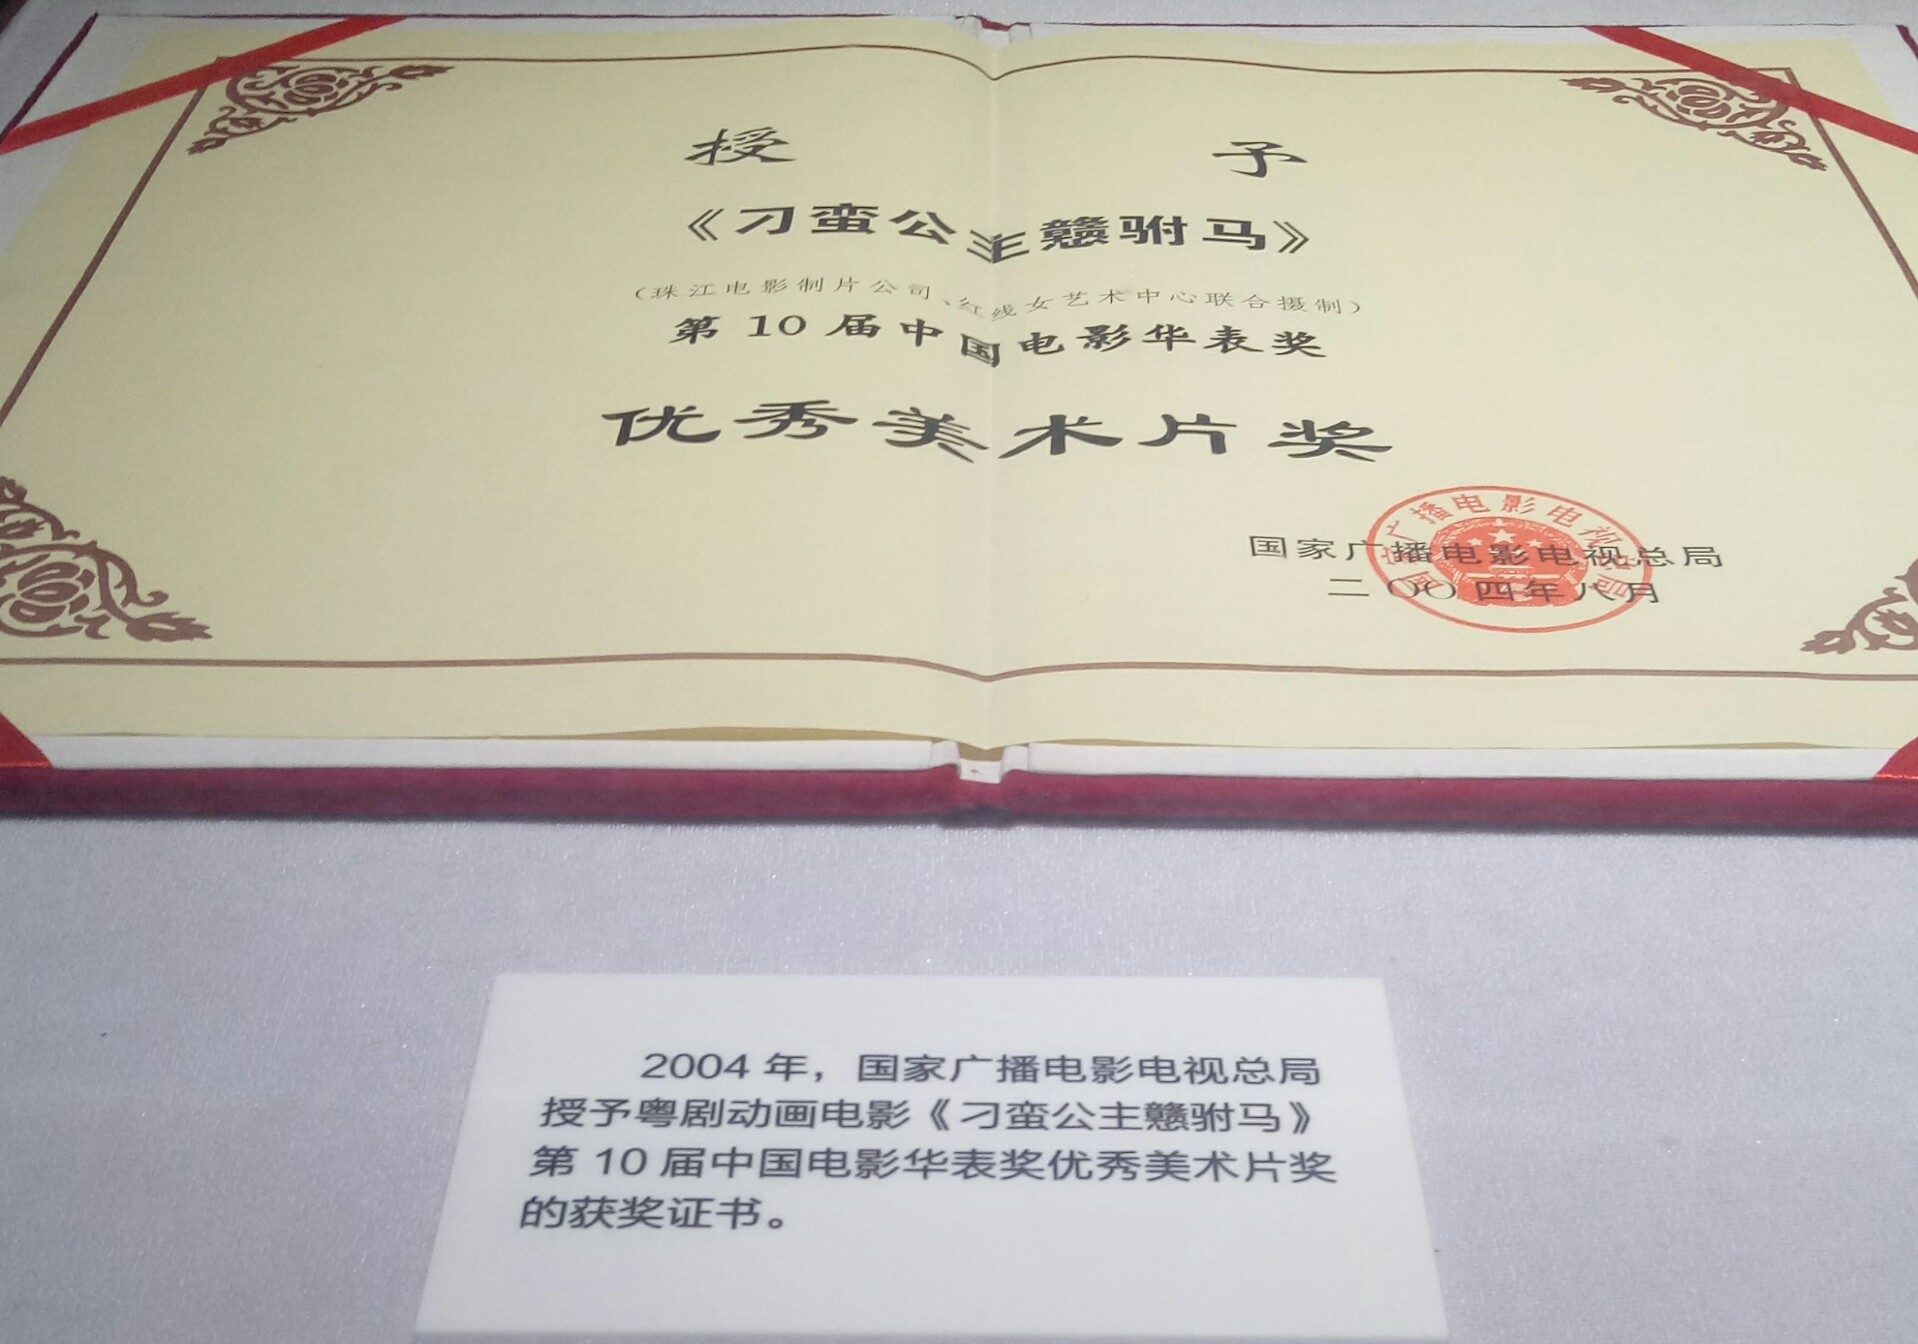 授予
《刁蛮公主戆驸马》
（珠江电影制片公司、红线女艺术中心联合摄制）
第10届中国电影华表奖
优秀美术片奖
国家广播电影电视总局
二〇〇四年八月
国家广播电影电视总局
2004年，国家广播电影电视总局
授予粤剧动画电影《刁蛮公主戆驸马》
第10届中国电影华表奖优秀美术片奖
的获奖证书。